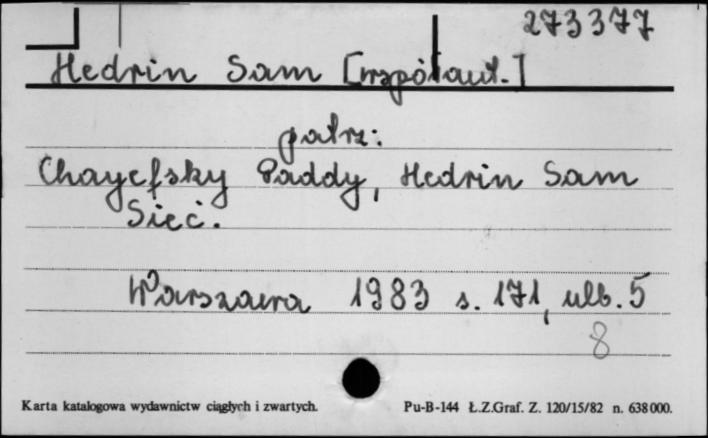 273377
Hedrin Sam [współaut.]
patrz:
Chayefsky Paddy, Hedrin Sam
Sieć.
Warszawa 1983 s. 171, ulb. 5
8
Karta katalogowa wydawnictw ciągłych i zwartych. Pu-B-144 Ł.Z.Graf. Z. 120/15/82 n. 638000.